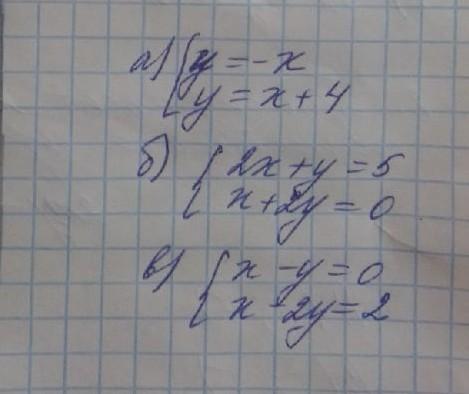 а) { y = -x
y = x + 4
б) { 2x + y = 5
x + 2y = 0
в) { x - y = 0
x - 2y = 2